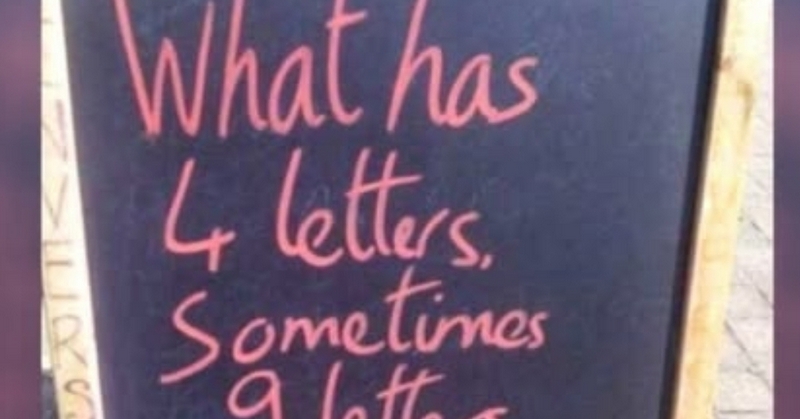 What has
4 letters,
Sometimes
9 letters